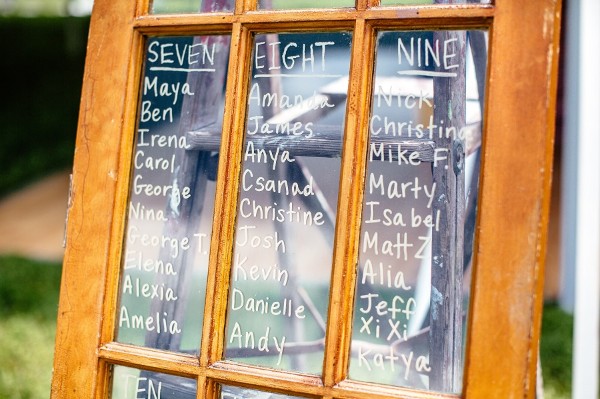 SEVEN
Maya
Ben
Irena
Carol
George
Nina
George T.
Elena
Alexia
Amelia
EIGHT
Amanda
James
Anya
Csanad
Christine
Josh
Kevin
Danielle
Andy
NINE
Nick
Christina
Mike F.
Marty
Isabel
Matt Z
Alia
Jeff
Xi Xi
Katya
TEN